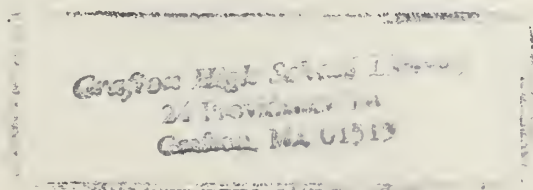 Grafton High School Library
24 Providence Rd
Grafton MA 01519